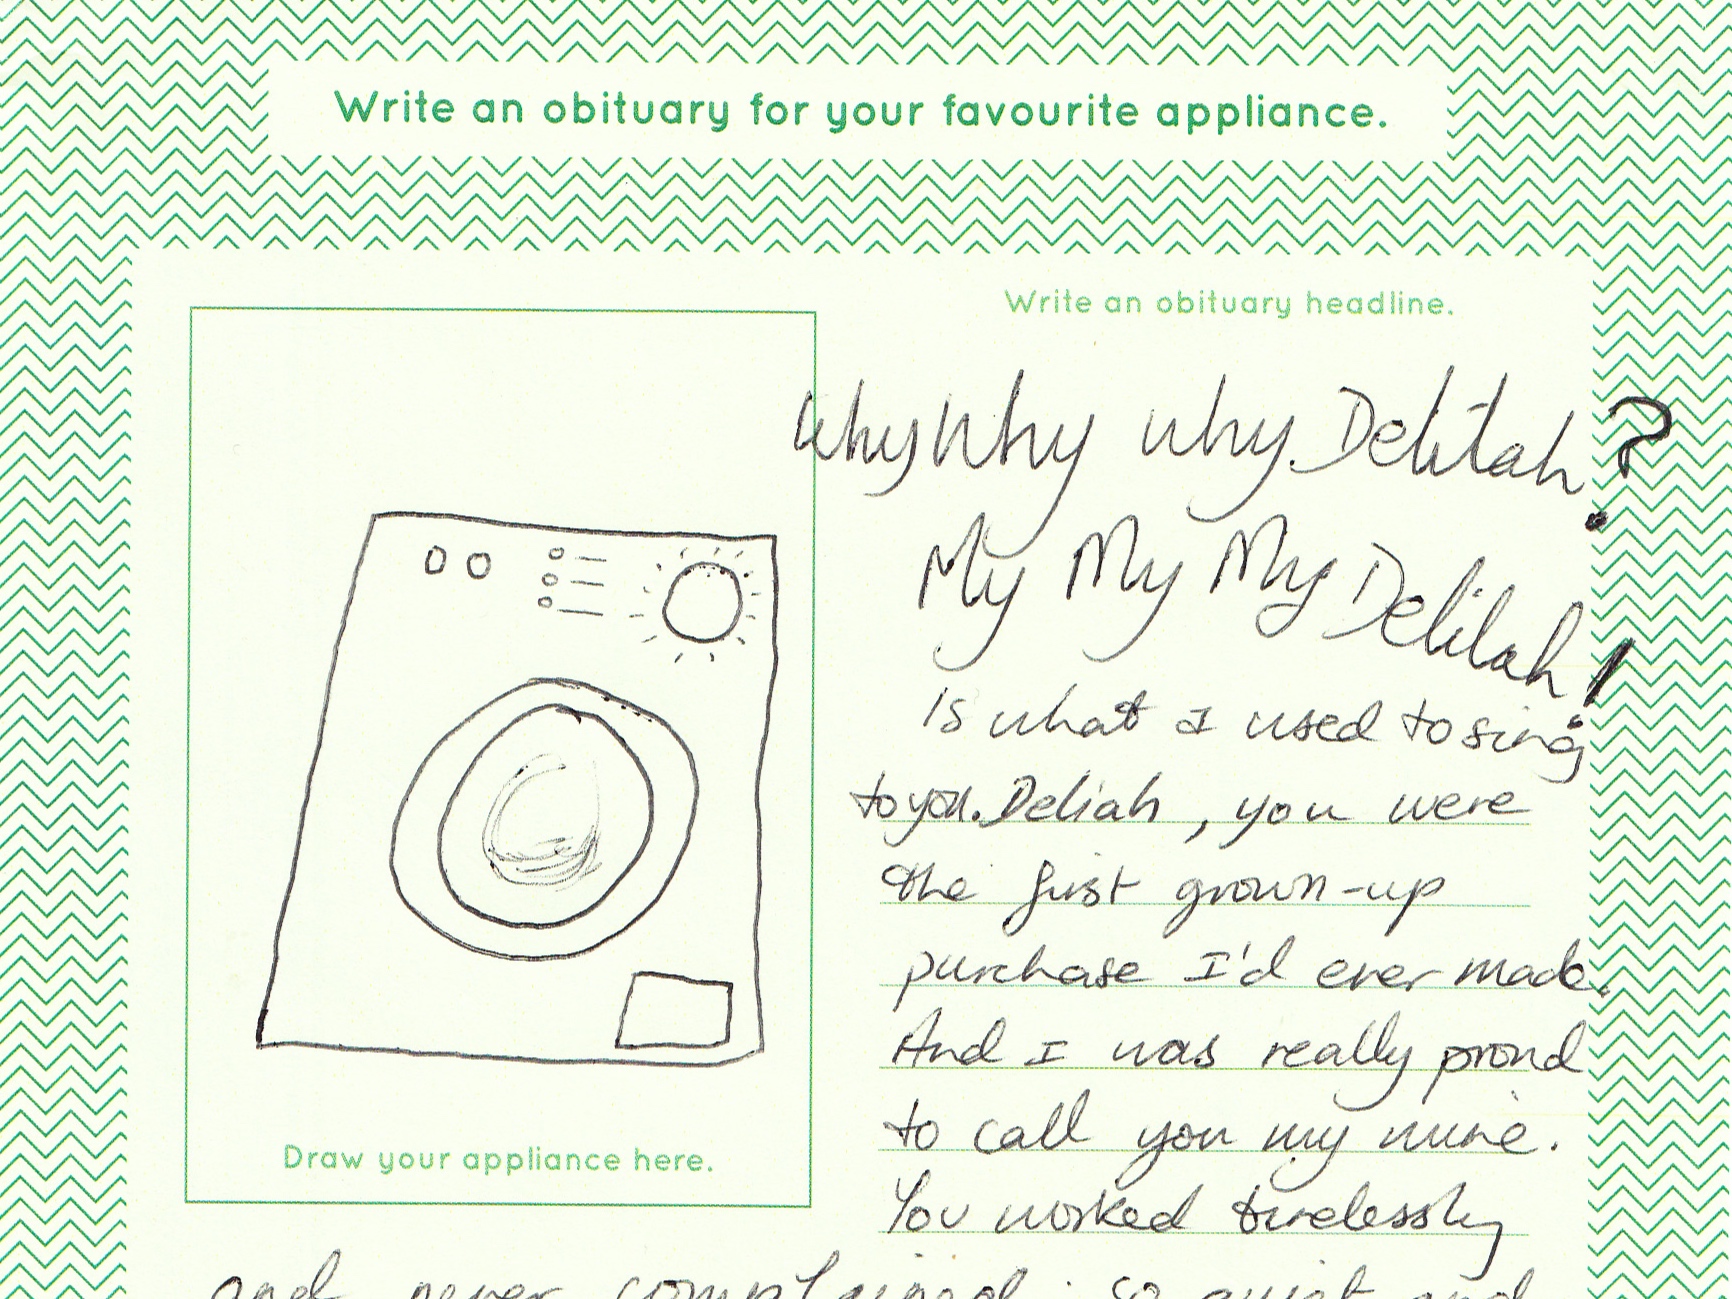 Write an obituary for your favourite appliance.
Write an obituary headline.
Why Why why Delilah?
My My My Delilah!
is what I used to sing
to you. Deliah, you were
the first grown-up
purchase I'd ever made.
And I was really proud
to call you my mine.
You worked tirelessly
and never complained. so quiet and
Draw your appliance here.